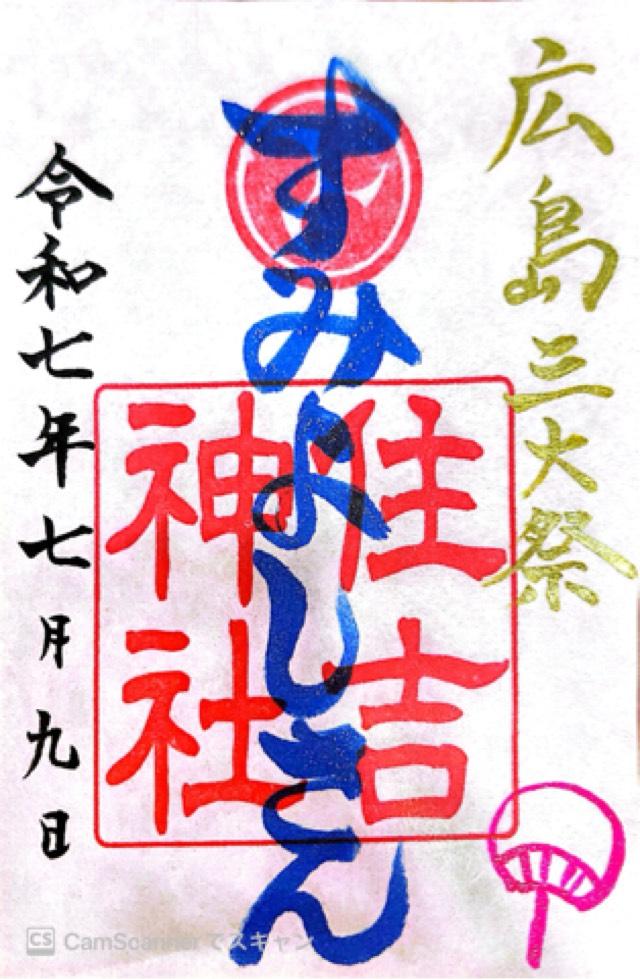 広島三大祭
すみよしさん
住吉
神社
令和七年七月九日
CS CamScannerでスキャン